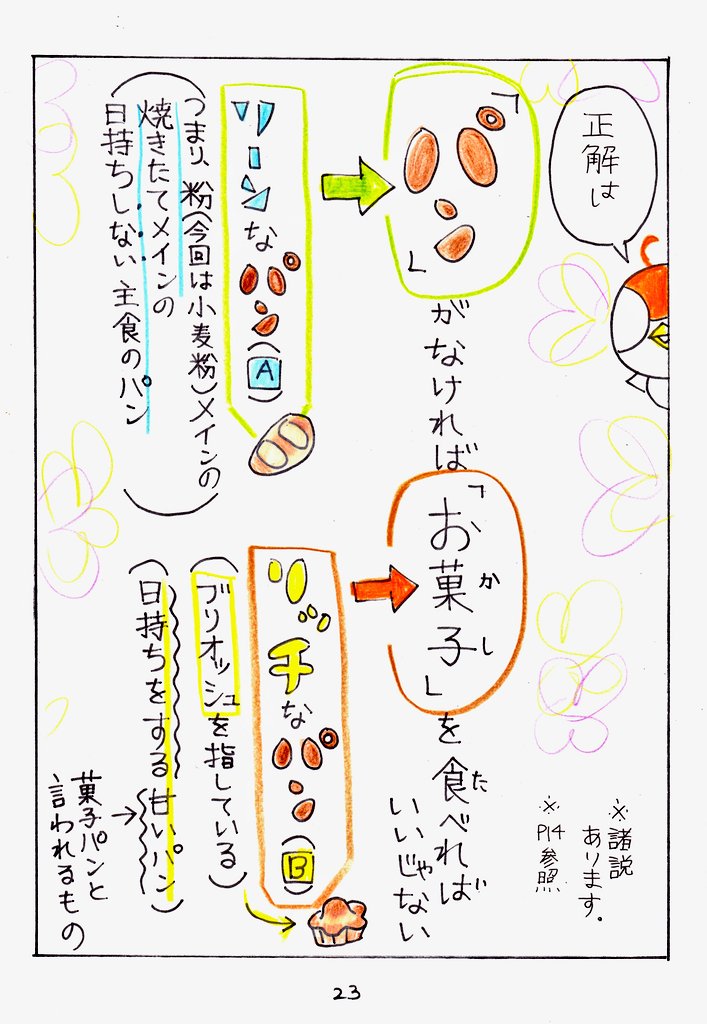 正解は
「パン」がなければ「お菓子」を食べれば
かし
た
いいじゃない
※諸説
あります。
※P14参照
リーンなパン(A)
つまり、粉(今回は小麦粉)メインの
焼きたてメインの
日持ちしない主食のパン
リッチなパン(B)
(ブリオッシュを指している)
日持ちをする甘いパン)
菓子パンと
言われるもの
23